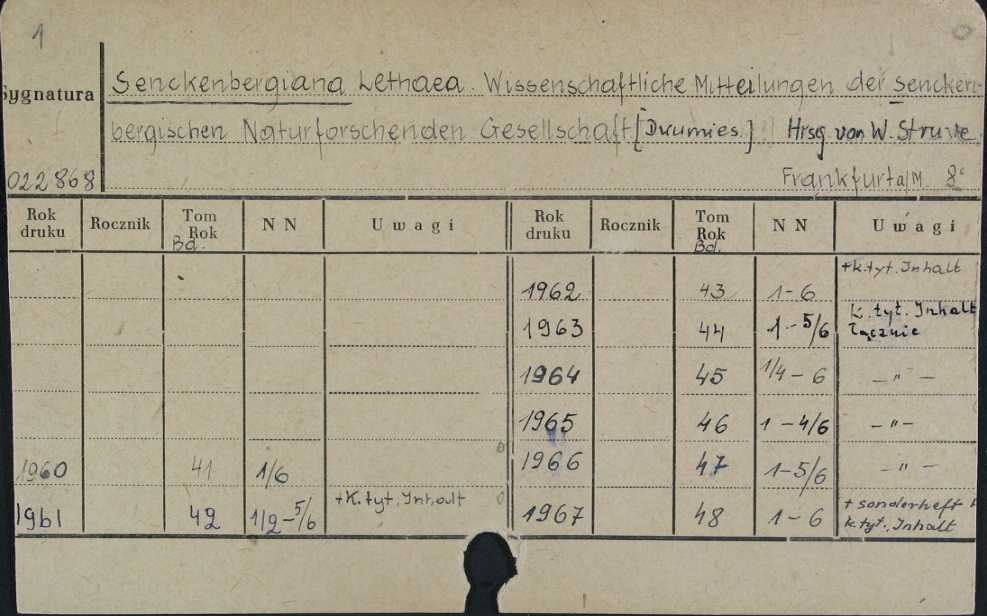 1
Sygnatura
Senckenbergiana Lethaea. Wissenschaftliche Mitteilungen der Sencken-
bergischen Naturforschenden Gesellschaft [Dwumies.] Hrsg. von W. Struve.
022868 Frankfurt a/M. 8°
Rok druku Rocznik Tom Rok Bd. NN Uwagi Rok druku Rocznik Tom Rok Bd. NN Uwagi
1962 43 1-6 +k.tyt. Inhalt
1963 44 1-5/6 k. tyt. Inhalt łącznie
1964 45 1/4-6 -"-
1965 46 1-4/6 -"-
1960 41 1/6 1966 47 1-5/6 -"-
1961 42 1/2-5/6 +k.tyt. Inhalt 1967 48 1-6 + sonderheft
k.tyt., Inhalt